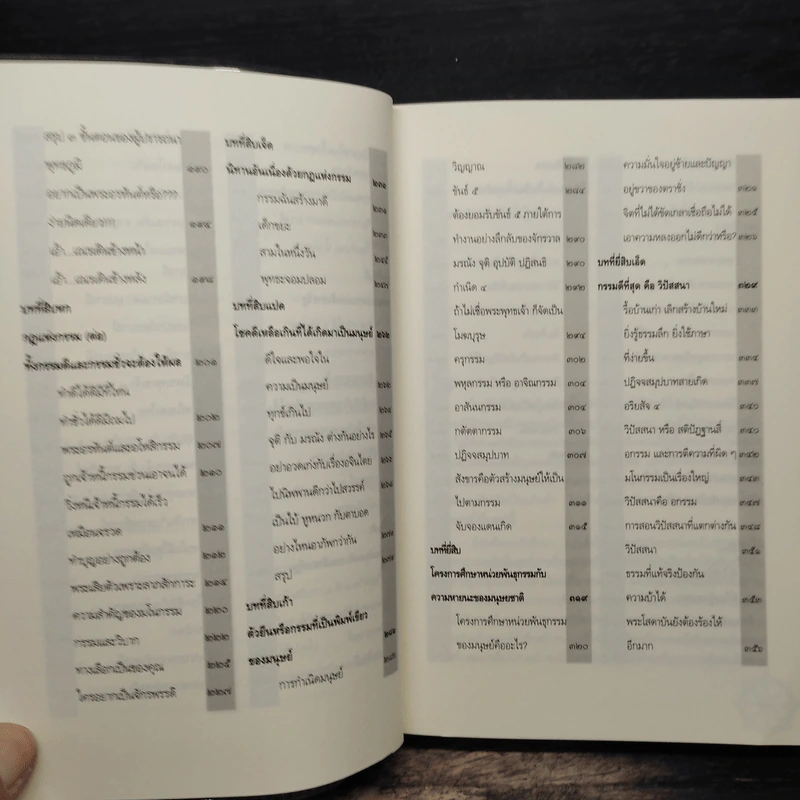 สรุป ๓ ขั้นตอนของผู้ปรารถนา
พุทธภูมิ ๑๙๐
อยากเป็นพระอรหันต์หรือ???
ง่ายนิดเดียว!!! ๑๙๔
เถ้า...เถรเดินข้างหน้า
เถ้า...เถรเดินข้างหลัง ๑๙๘
บทที่สิบหก
กฎแห่งกรรม (ต่อ)
ทั้งกรรมดีและกรรมชั่วจะต้องให้ผล ๒๐๑
ทำดีได้ดีมีที่ไหน
ทำชั่วได้ดีมีถมไป ๒๐๒
พระอรหันต์และอโหสิกรรม ๒๐๗
ถูกเจ้าหนี้กรรมช่วนเอาจนได้ ๒๑๐
วิ่งหนีเจ้าหนี้กรรมได้เร็ว
เหมือนจรวด ๒๑๑
ทำบุญอย่างถูกต้อง ๒๑๒
พระเสียตัวเพราะลาภสักการะ ๒๑๔
ความสำคัญของมโนกรรม ๒๒๐
กรรมและวิบาก ๒๒๒
ทางเลือกเป็นของคุณ ๒๒๕
ใครอยากเป็นจักรพรรดิ ๒๒๗
บทที่สิบเจ็ด
นิทานอันเนื่องด้วยกฎแห่งกรรม ๒๓๑
กรรมฉันสร้างมาดี ๒๓๑
เด็กขยะ ๒๓๑
สามในหนึ่งวัน
พุทธะจอมปลอม
บทที่สิบแปด
โชคดีเหลือเกินที่ได้เกิดมาเป็นมนุษย์ ๒๖๒
ดีใจและพอใจใน
ความเป็นมนุษย์ ๒๖๒
ทุกข์เกินไป
จุติ กับ มรณัง ต่างกันอย่างไร ๒๖๕
อย่าอวดเก่งกับเรื่องอจินไตย
ไปนิพพานดีกว่าไปสวรรค์
เป็นใบ้ หูหนวก กับตาบอด
อย่างไหนอาภัพกว่ากัน
สรุป ๒๗๗
บทที่สิบเก้า
ตัวยีนหรือกรรมที่เป็นพิมพ์เขียว
ของมนุษย์
การกำเนิดมนุษย์
วิญญาณ ๒๘๒
ขันธ์ ๕ ๒๘๔
ต้องยอมรับขันธ์ ๕ ภายใต้การ
ทำงานอย่างลึกลับของจักรวาล ๒๙๐
มรณัง จุติ อุปบัติ ปฏิสนธิ ๒๙๐
กำเนิด ๔ ๒๙๒
ถ้าไม่เชื่อพระพุทธเจ้า ก็จัดเป็น
โมฆบุรุษ ๒๙๔
ครุกรรม ๓๐๒
พหุลกรรม หรือ อาจิณกรรม ๓๐๔
อาสันนกรรม ๓๐๔
กตัตตากรรม ๓๐๖
ปฏิจจสมุปบาท ๓๐๗
สังขารคือตัวสร้างมนุษย์ให้เป็น
ไปตามกรรม ๓๑๑
จับจองแดนเกิด ๓๑๕
บทที่ยี่สิบ
โครงการศึกษาหน่วยพันธุกรรมกับ
ความหายนะของมนุษยชาติ ๓๑๙
โครงการศึกษาหน่วยพันธุกรรม
ของมนุษย์คืออะไร? ๓๒๐
ความมั่นใจอยู่ซ้ายและปัญญา
อยู่ขวาของตราชั่ง ๓๒๑
จิตที่ไม่ได้ขัดเกลาเชื่อถือไม่ได้ ๓๒๕
เอาความหลงออกไม่ดีกว่าหรือ? ๓๒๖
บทที่ยี่สิบเอ็ด
กรรมดีที่สุด คือ วิปัสสนา ๓๒๙
รื้อบ้านเก่า เลิกสร้างบ้านใหม่ ๓๓๓
ยิ่งรู้ธรรมลึก ยิ่งใช้ภาษา
ที่ง่ายขึ้น ๓๓๔
ปฏิจจสมุปบาทสายเกิด ๓๓๗
อริยสัจ ๔ ๓๔๐
วิปัสสนา หรือ สติปัฏฐานสี่ ๓๔๐
อกรรม และการตีความที่ผิด ๆ ๓๔๒
มโนกรรมเป็นเรื่องใหญ่ ๓๔๓
วิปัสสนาคือ อกรรม ๓๔๗
การสอนวิปัสสนาที่แตกต่างกัน ๓๔๘
วิปัสสนา ๓๕๑
ธรรมที่แท้จริงป้องกัน
ความบ้าได้ ๓๕๓
พระโสดาบันยังต้องร้องไห้
อีกมาก ๓๕๖